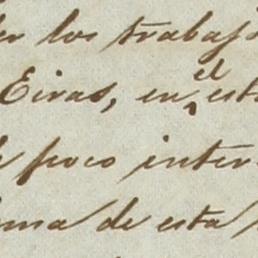 los trabaj
Eiras, en el est
poco inter
ma de esta